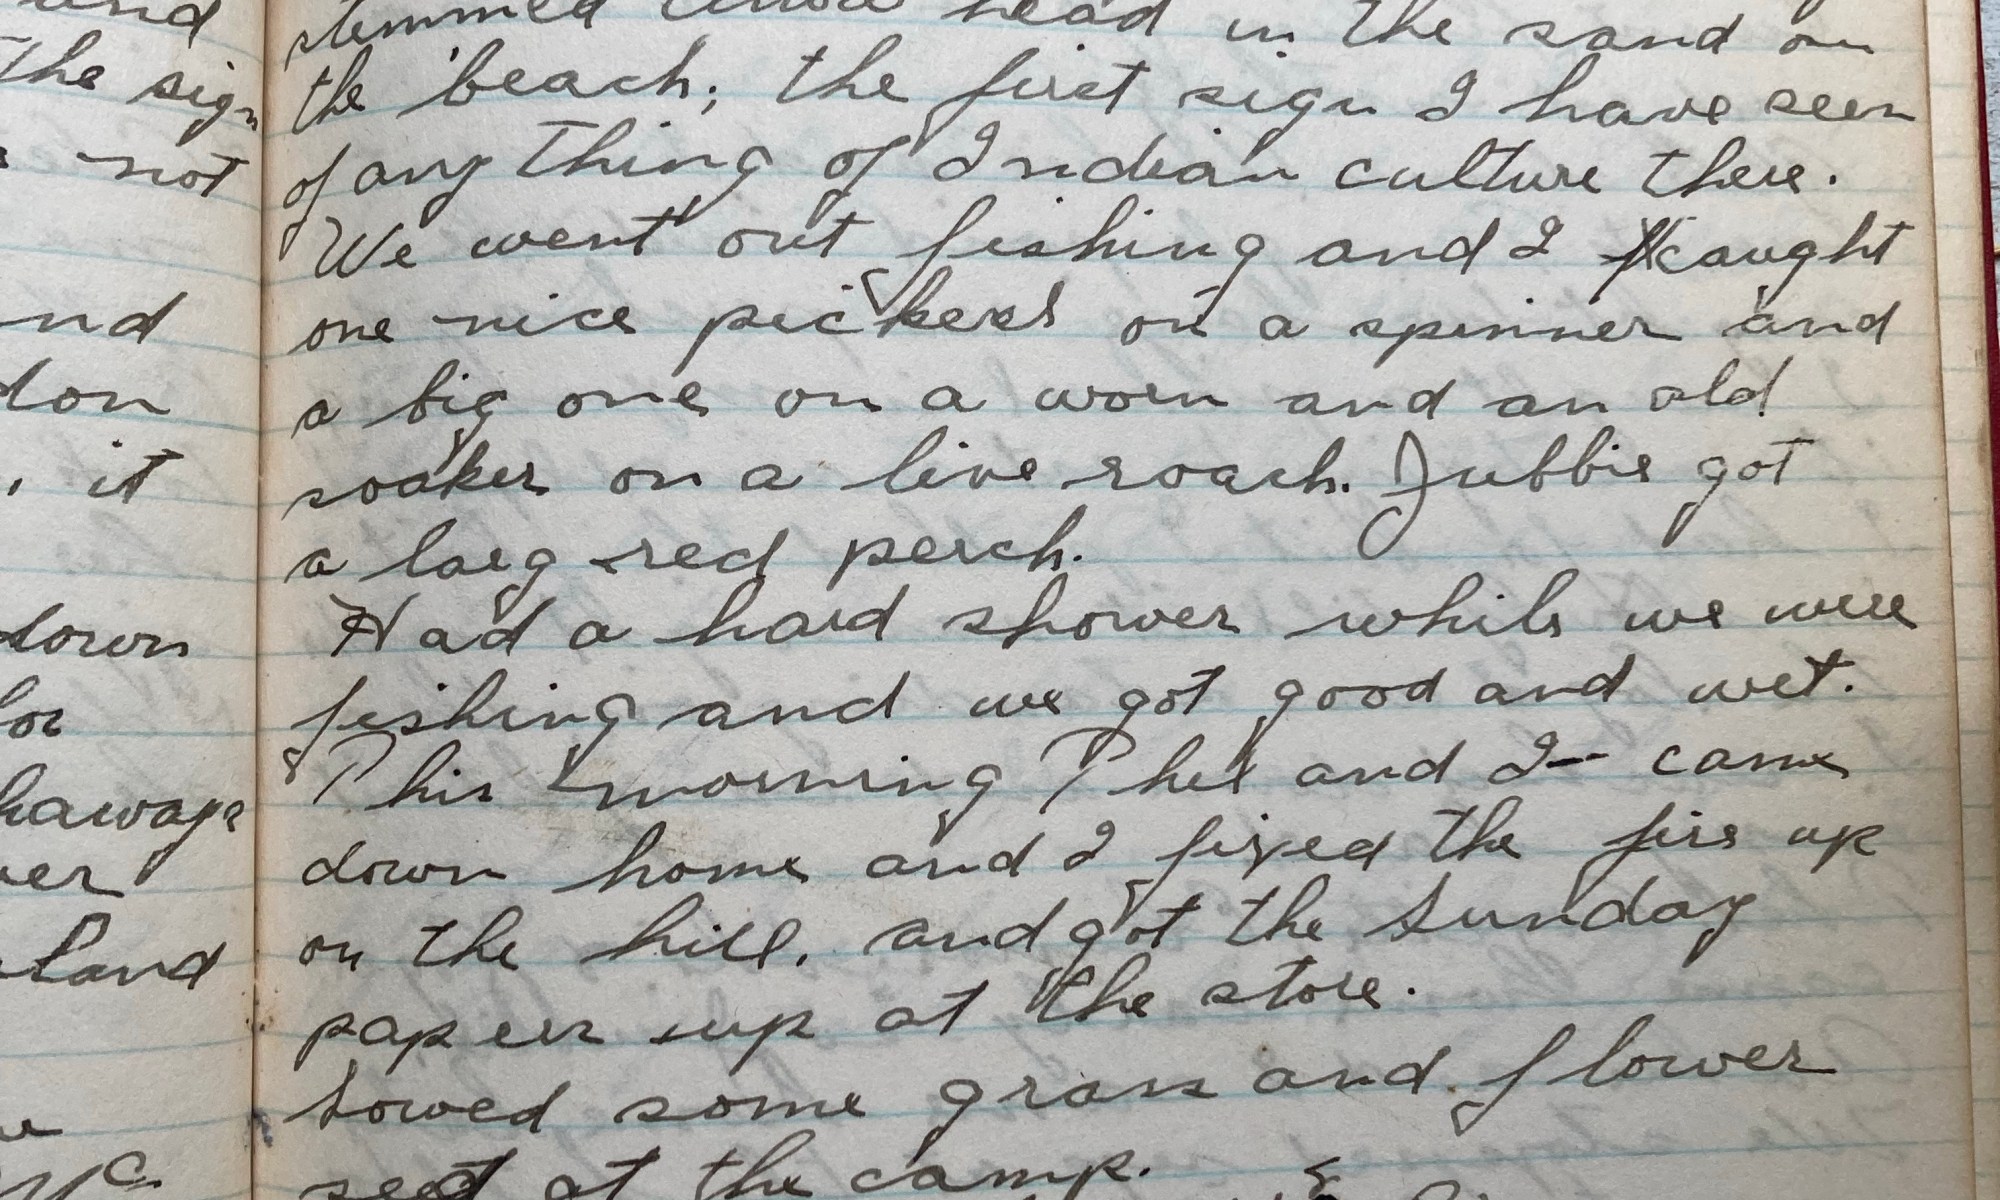 and
the sign
not
nd
don
, it
down
for
haways
er
land
stemmed head in the sand on
the beach; the first sign I have seen
of any thing of Indian culture there.
We went out fishing and I caught
one nice pickerel on a spinner and
a big one on a worm and an old
soaker on a live roach. Jubbie got
a larg red perch.
Had a hard shower while we were
fishing and we got good and wet.
This morning Phil and I- came
down home and I fixed the fire up
on the hill. and got the Sunday
paper up at the store.
Sowed some grass and flower
seed at the camp.